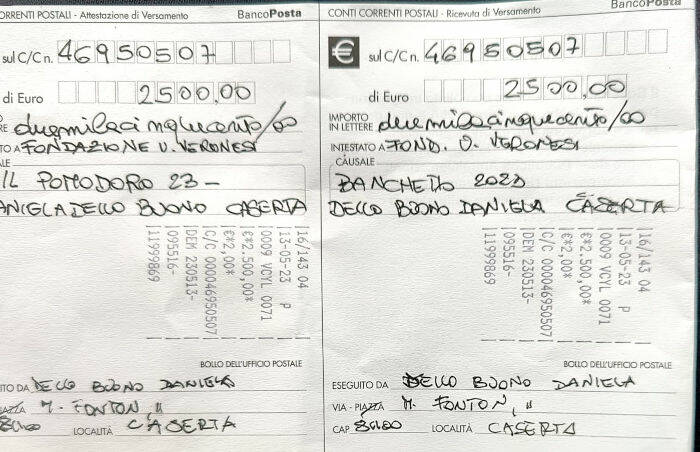 ORRENTI POSTALI - Attestazione di Versamento BancoPosta
sul C/C n. 46950507
di Euro 2500,00
RE duemilacinquecento/00
TO A FONDAZIONE U. VERONESI
ALE
IL POMODORO 23 -
ANIELA DELLO BUONO CASERTA
|16/143 04
|13-05-23 P
|0009 VCYL 0071
|€*2.500,00*
|€*2,00*
|C/C 000046950507
|DEM 230513-
|095516-
|11999869
BOLLO DELL'UFFICIO POSTALE
ITO DA DELLO BUONO DANIELA
IAZZA M. FONTON, 11
81100 LOCALITÀ CASERTA
CONTI CORRENTI POSTALI - Ricevuta di Versamento BancoPosta
€ sul C/C n. 46950507
di Euro 2500,00
IMPORTO
IN LETTERE duemilacinquecento/00
INTESTATO A FOND. U. VERONESI
CAUSALE
BANCHETTO 2023
DELLO BUONO DANIELA CASERTA
|16/143 04
|13-05-23 P
|0009 VCYL 0071
|€*2.500,00*
|€*2,00*
|C/C 000046950507
|DEM 230513-
|095516-
|11999869
BOLLO DELL'UFFICIO POSTALE
ESEGUITO DA DELLO BUONO DANIELA
VIA - PIAZZA M. FONTON, 11
CAP 81100 LOCALITÀ CASERTA